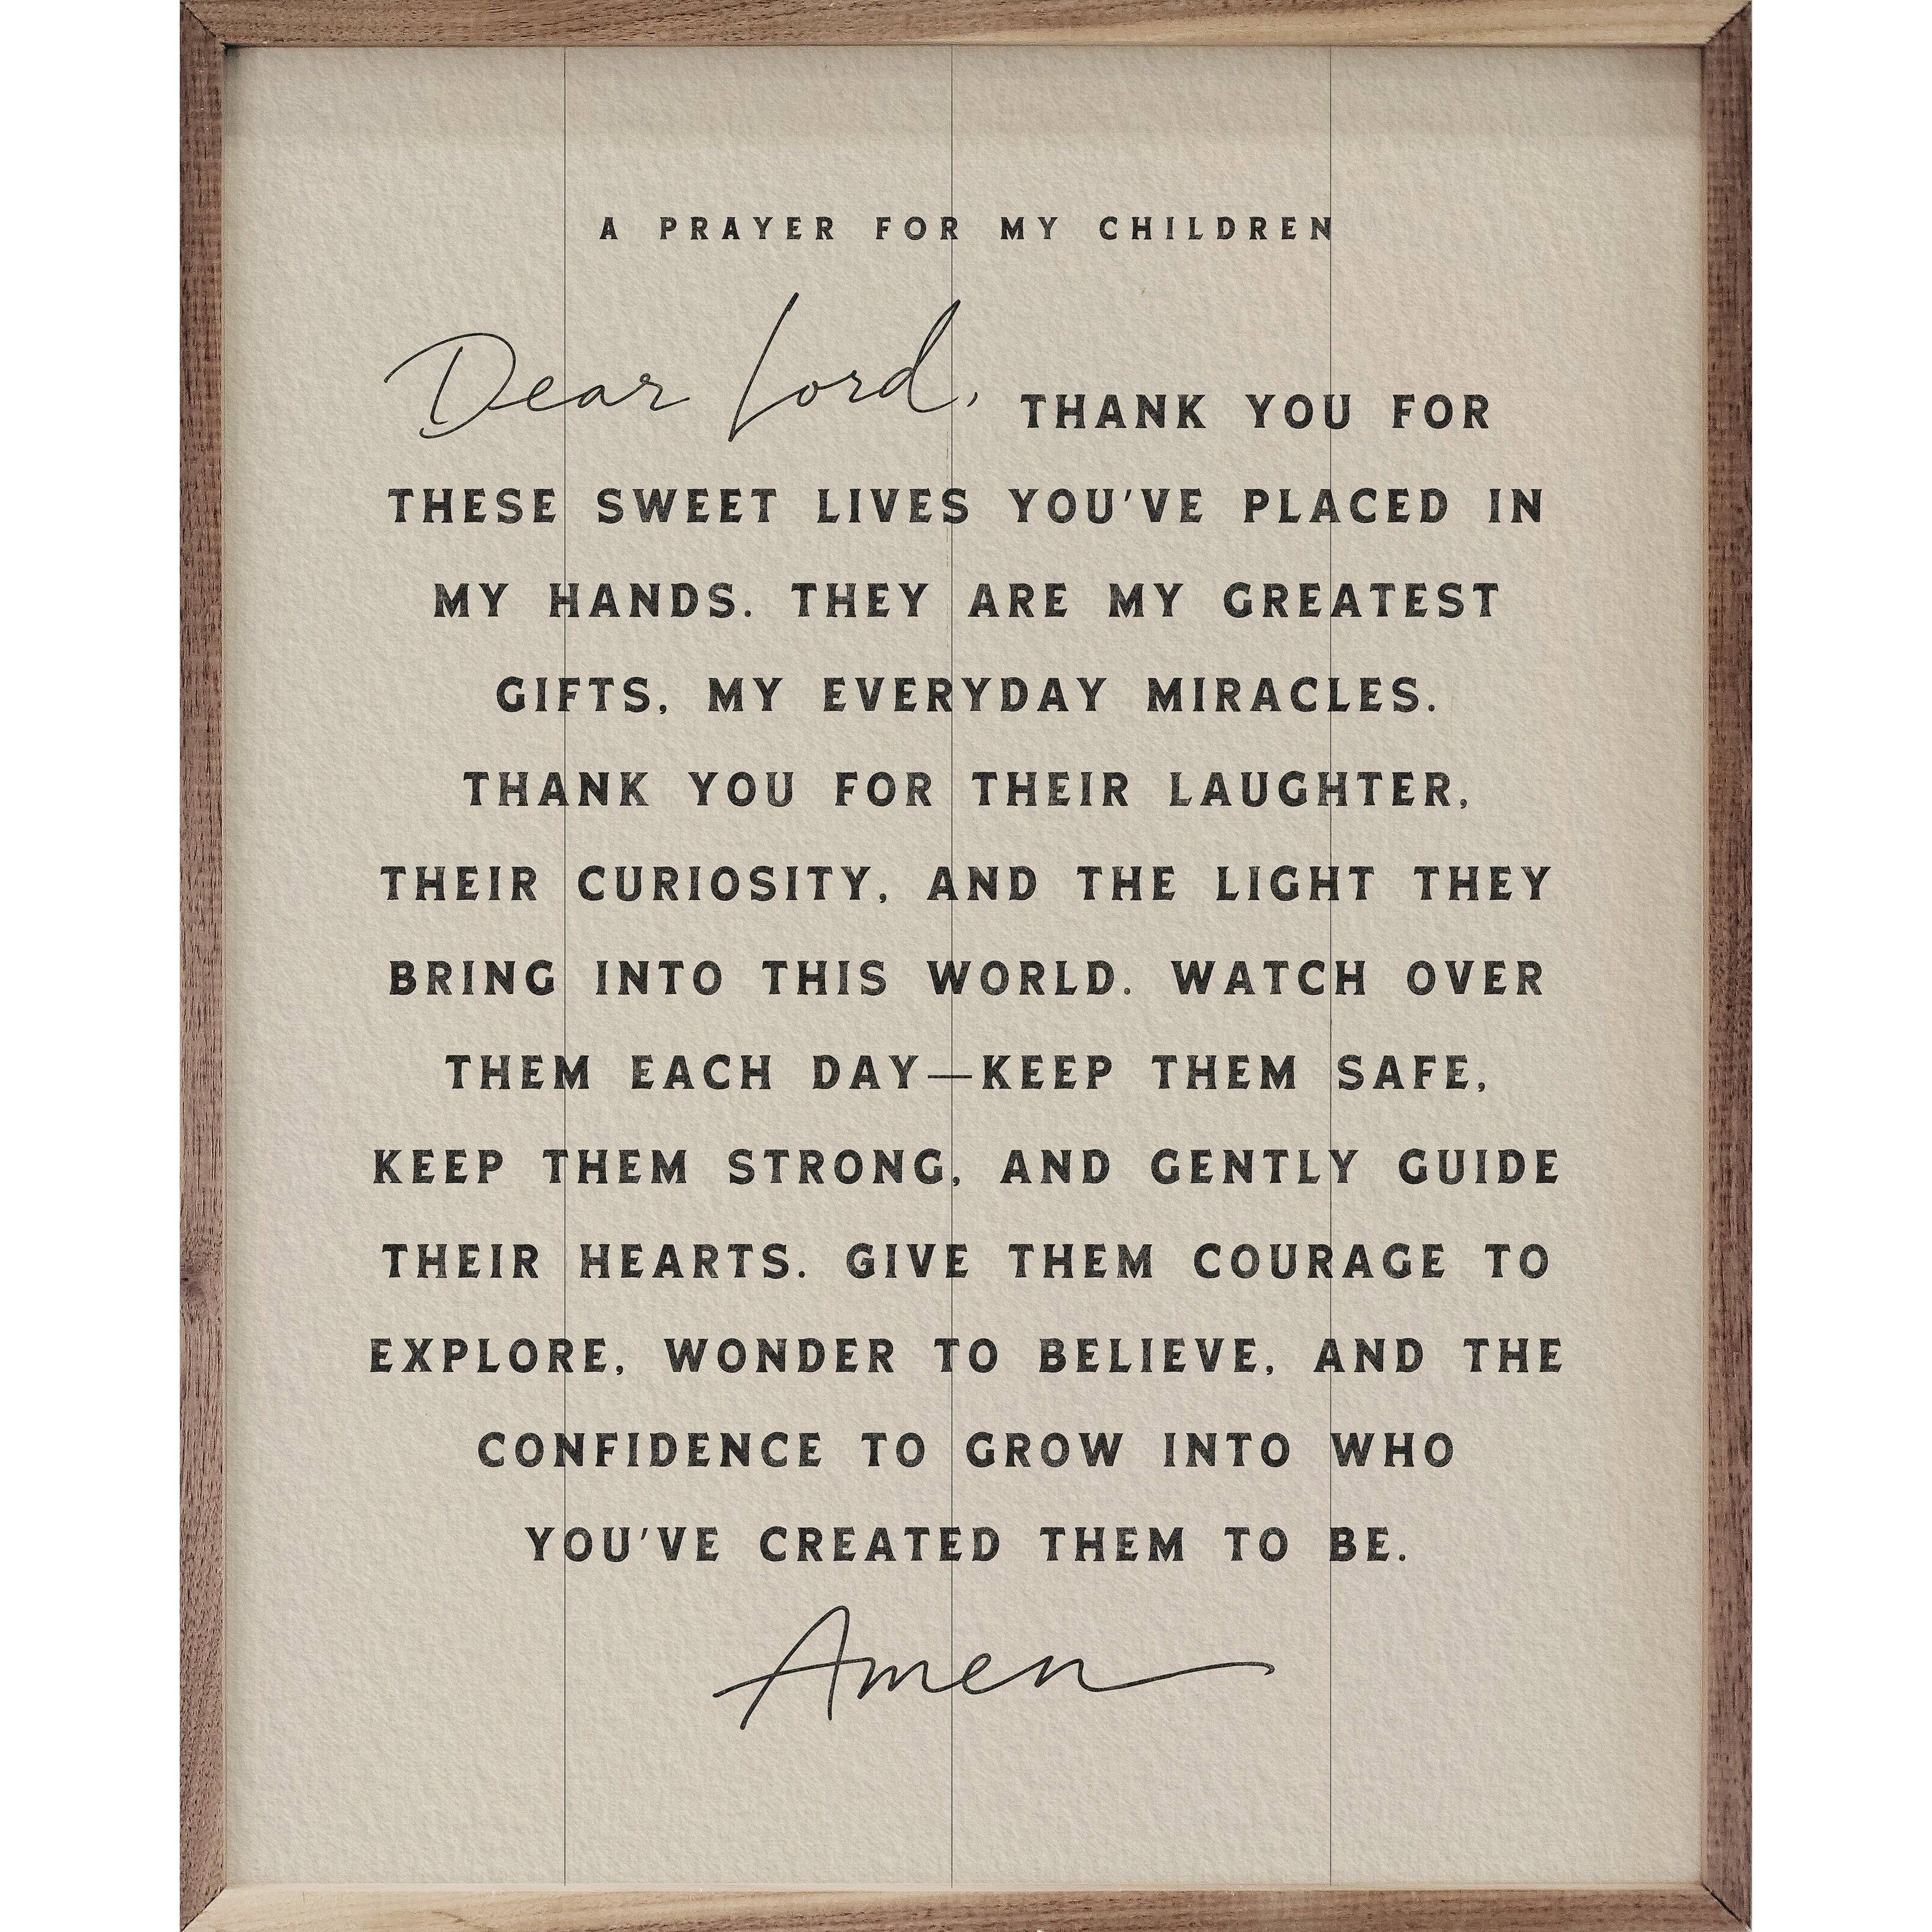 A PRAYER FOR MY CHILDREN
Dear Lord, THANK YOU FOR
THESE SWEET LIVES YOU'VE PLACED IN
MY HANDS. THEY ARE MY GREATEST
GIFTS, MY EVERYDAY MIRACLES.
THANK YOU FOR THEIR LAUGHTER,
THEIR CURIOSITY, AND THE LIGHT THEY
BRING INTO THIS WORLD. WATCH OVER
THEM EACH DAY—KEEP THEM SAFE,
KEEP THEM STRONG, AND GENTLY GUIDE
THEIR HEARTS. GIVE THEM COURAGE TO
EXPLORE, WONDER TO BELIEVE, AND THE
CONFIDENCE TO GROW INTO WHO
YOU'VE CREATED THEM TO BE.
Amen